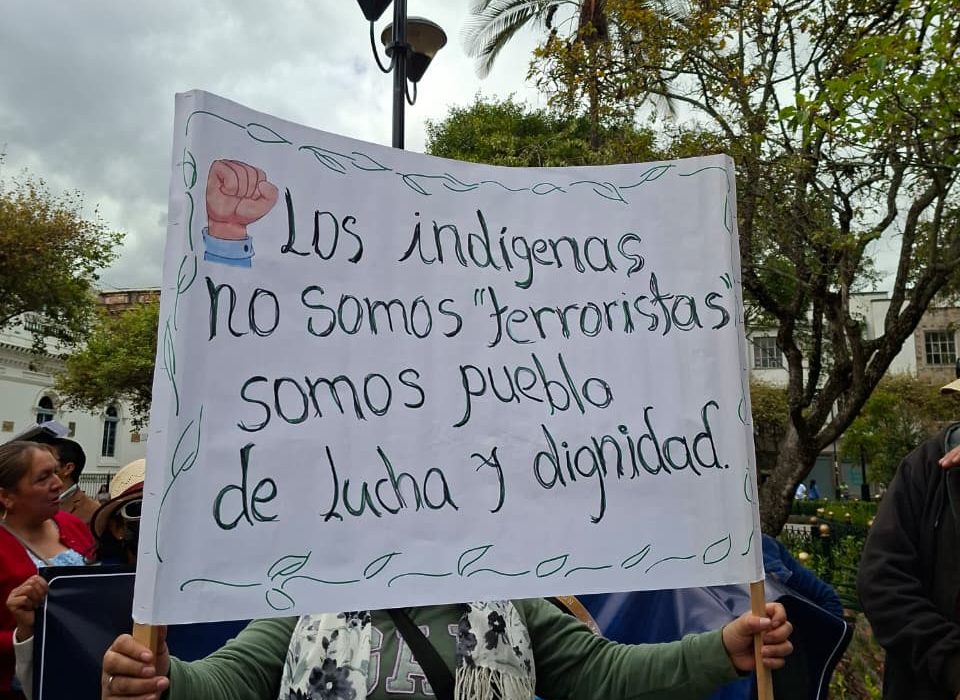 Los indígenas
no somos "terroristas"
somos pueblo
de lucha y dignidad.
GA